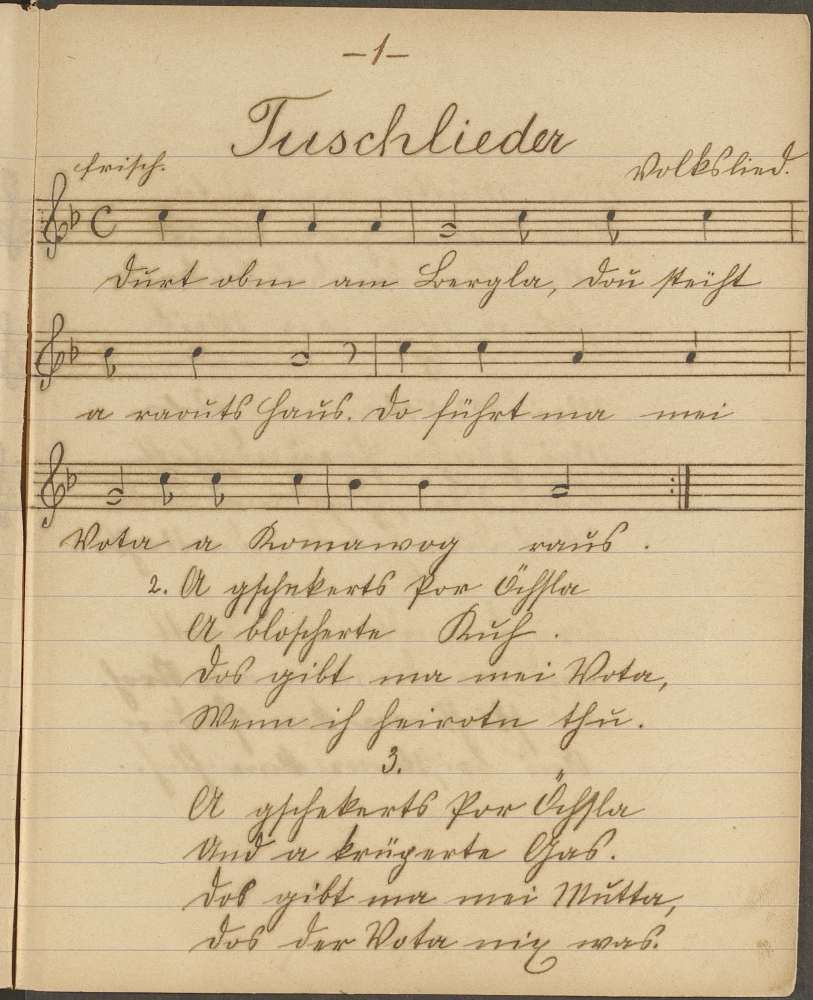 –1–
Tuschlieder
frisch. Volkslied.
Durt obm am Bergla, dou steiht
a raouts Haus. Do führt ma mei
Vota a Komawog raus.
2. A gschekerts Por Öchsla
A bloscherte Kuh.
Dos gibt ma mei Vota,
Wenn ich heirotn thu.
3.
A gschekerts Por Öchsla
Und a krüperte Gas.
Dos gibt ma mei Mutta,
Dos der Vota nix was.